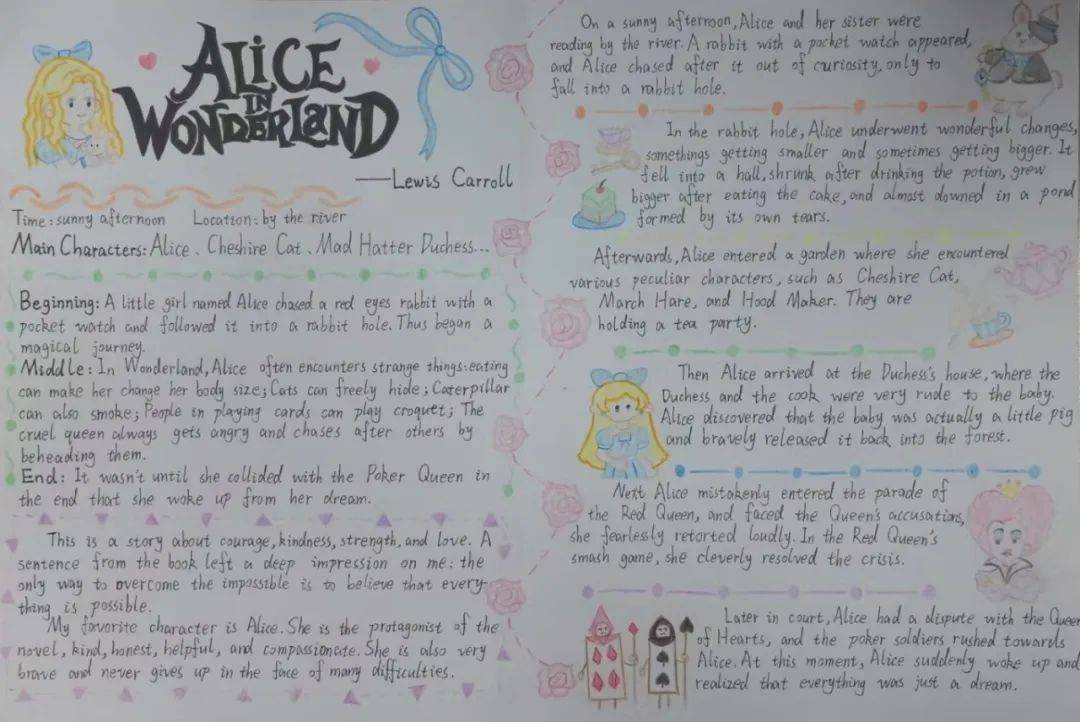 ALICE
IN
WONDERLAND
—Lewis Carroll
Time: sunny afternoon Location: by the river
Main Characters: Alice、Cheshire Cat、Mad Hatter Duchess...
Beginning: A little girl named Alice chased a red eyes rabbit with a
pocket watch and followed it into a rabbit hole. Thus began a
magical journey.
Middle: In Wonderland, Alice often encounters strange things: eating
can make her change her body size; Cats can freely hide; Caterpillar
can also smoke; People in playing cards can play croquet; The
cruel queen always gets angry and chases after others by
beheading them.
End: It wasn't until she collided with the Poker Queen in
the end that she woke up from her dream.
This is a story about courage, kindness, strength, and love. A
sentence from the book left a deep impression on me: the
only way to overcome the impossible is to believe that every-
thing is possible.
My favorite character is Alice. She is the protagonist of the
novel, kind, honest, helpful, and compassionate. She is also very
brave and never gives up in the face of many difficulties.
On a sunny afternoon, Alice and her sister were
reading by the river. A rabbit with a pocket watch appeared,
and Alice chased after it out of curiosity, only to
fall into a rabbit hole.
In the rabbit hole, Alice underwent wonderful changes,
somethings getting smaller and sometimes getting bigger. It
fell into a hall, shrunk after drinking the potion, grew
bigger after eating the cake, and almost downed in a pond
formed by its own tears.
Afterwards, Alice entered a garden where she encountered
various peculiar characters, such as Cheshire Cat,
March Hare, and Hood Maker. They are
holding a tea party.
Then Alice arrived at the Duchess's house, where the
Duchess and the cook were very rude to the baby.
Alice discovered that the baby was actually a little pig
and bravely released it back into the forest.
Next Alice mistakenly entered the parade of
the Red Queen, and faced the Queen's accusations,
she fearlessly retorted loudly. In the Red Queen's
smash game, she cleverly resolved the crisis.
Later in court, Alice had a dispute with the Queen
of Hearts, and the poker soldiers rushed towards
Alice. At this moment, Alice suddenly woke up and
realized that everything was just a dream.